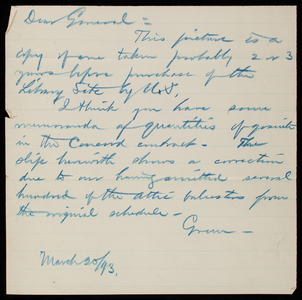 Dear General =
This picture is a
copy of one taken probably 2 or 3
years before purchase of the
Library Site by U.S.
I think you have some
memoranda of quantities of granite
in the Concord contract - The
slip herewith shows a correction
due to our having omitted several
hundred of the attic balusters from
the original schedule -
Green -
March 20/93.